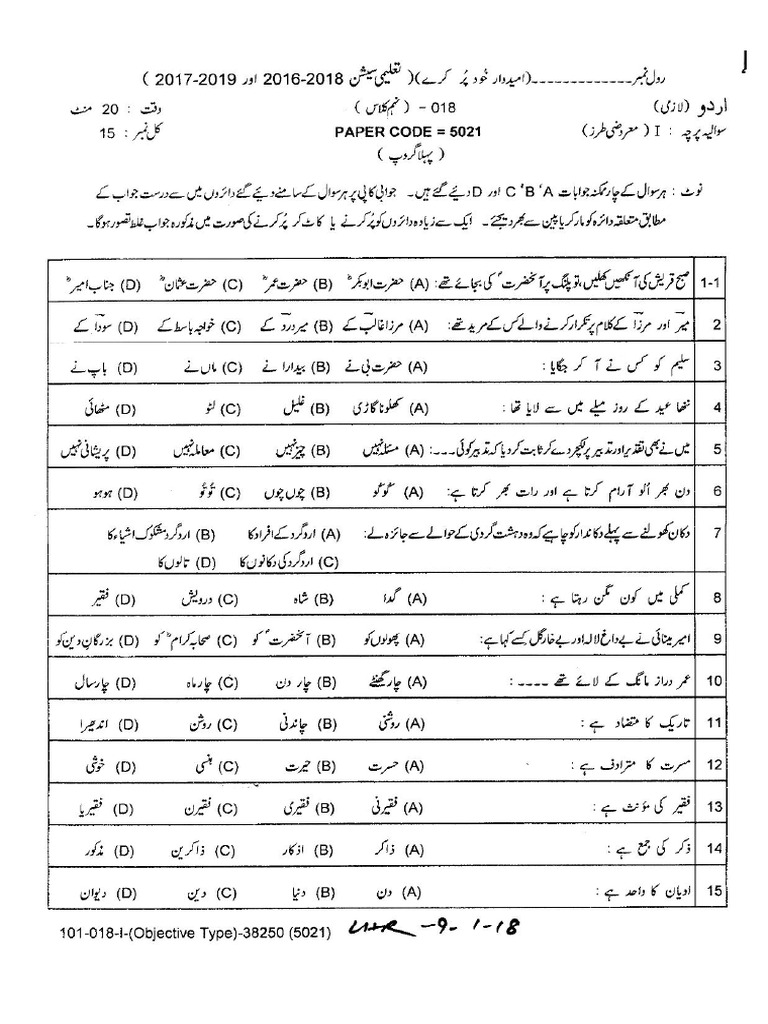 رول نمبر-------------(امیدوار خود پُر کرے)( تعلیمی سیشن 2018-2016 اور 2019-2017 )
اردو (لازمی) 018 - (نہم کلاس) وقت : 20 منٹ
سوالیہ پرچہ : I ( معروضی طرز) PAPER CODE = 5021 کل نمبر : 15
(پہلا گروپ)
نوٹ : ہر سوال کے چار ممکنہ جوابات A ،B ،C اور D دئیے گئے ہیں۔ جوابی کاپی پر ہر سوال کے سامنے دئیے گئے دائروں میں سے درست جواب کے
مطابق متعلقہ دائرہ کو مارکر یا پین سے بھر دیجئے۔ ایک سے زیادہ دائروں کو پُر کرنے یا کاٹ کر پُر کرنے کی صورت میں مذکورہ جواب غلط تصور ہوگا۔
1-1 صبح قریش کی آنکھیں کھلیں، تو پلنگ پر آنحضرتؐ کی بجائے تھے: (A) حضرت ابوبکرؓ (B) حضرت عمرؓ (C) حضرت عثمانؓ (D) جناب امیرؓ
2 میر اور مرزا کے کلام پر تکرار کرنے والے کس کے مرید تھے: (A) مرزا غالب کے (B) میر درد کے (C) خواجہ باسط کے (D) سودا کے
3 سلیم کو کس نے آ کر جگایا : (A) حضرت بی نے (B) بیدارا نے (C) ماں نے (D) باپ نے
4 ننھا عید کے روز میلے میں سے لایا تھا : (A) کھلونا گاڑی (B) غلیل (C) لٹو (D) مٹھائی
5 میں نے بھی تقدیر اور تدبیر پر لیکچر دے کر ثابت کر دیا کہ تدبیر کوئی ۔۔۔۔: (A) مسئلہ نہیں (B) چیز نہیں (C) معاملہ نہیں (D) پریشانی نہیں
6 دن بھر اُلو آرام کرتا ہے اور رات بھر کرتا ہے: (A) گُوگُو (B) چوں چوں (C) تُوتُو (D) ہوہو
7 دکان کھولنے سے پہلے دکاندار کو چاہیے کہ وہ دہشت گردی کے حوالے سے جائزہ لے: (A) اردگرد کے افراد کا (B) اردگرد مشکوک اشیاء کا
(C) اردگرد کی دکانوں کا (D) تالوں کا
8 کملی میں کون مگن رہتا ہے : (A) گدا (B) شاہ (C) درویش (D) فقیر
9 امیر مینائی نے بے داغ لالہ اور بے خار گل کسے کہا ہے: (A) پھولوں کو (B) آنحضرتؐ کو (C) صحابہ کرامؓ کو (D) بزرگان دین کو
10 عمر دراز مانگ کے لائے تھے ۔۔۔۔ : (A) چار گھنٹے (B) چار دن (C) چار ماہ (D) چار سال
11 تاریک کا متضاد ہے : (A) روشنی (B) چاندنی (C) روشن (D) اندھیرا
12 مسرت کا مترادف ہے : (A) حسرت (B) حیرت (C) ہنسی (D) خوشی
13 فقیر کی مؤنث ہے : (A) فقیرنی (B) فقیری (C) فقیرن (D) فقیریا
14 ذکر کی جمع ہے : (A) ذاکر (B) اذکار (C) ذاکرین (D) مذکور
15 ادیان کا واحد ہے : (A) دن (B) دنیا (C) دین (D) دیوان
101-018-I-(Objective Type)-38250 (5021) LHR -9-1-18